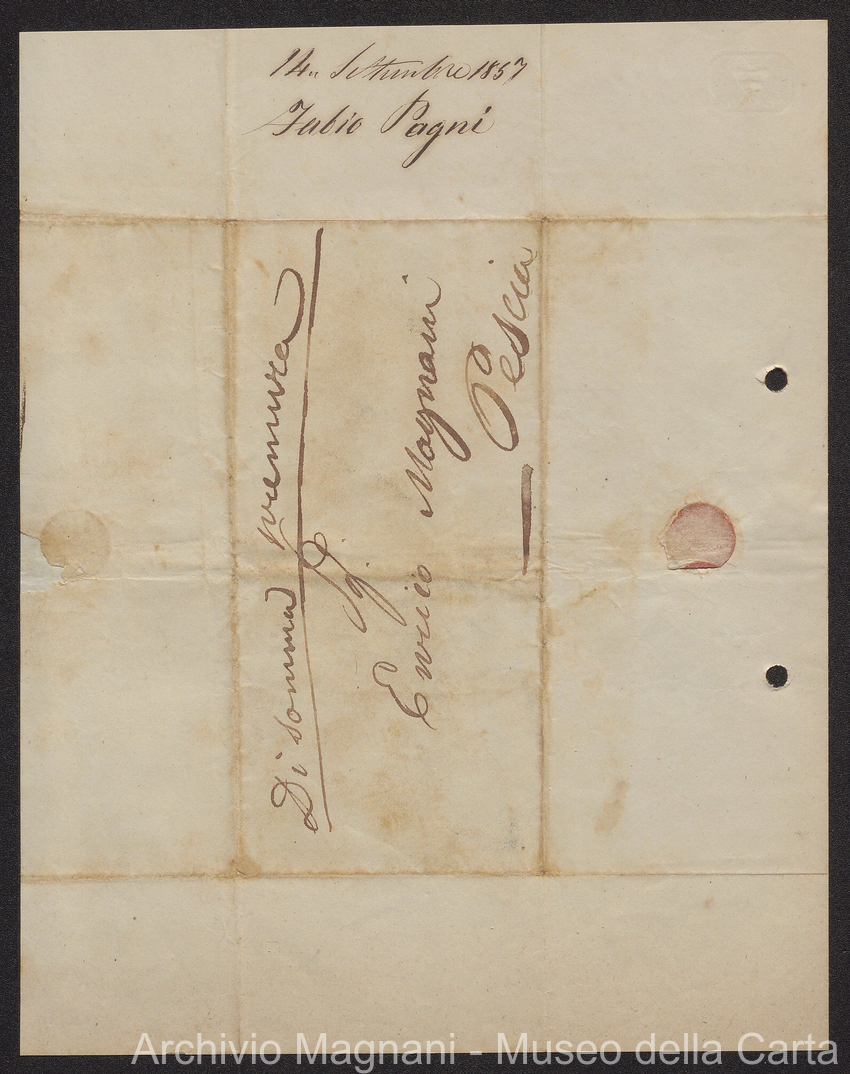 14„ Settembre 1857
Fabio Pagni
Di somma premura
Sig.
Enrico Magnani
Pescia
Archivio Magnani - Museo della Carta